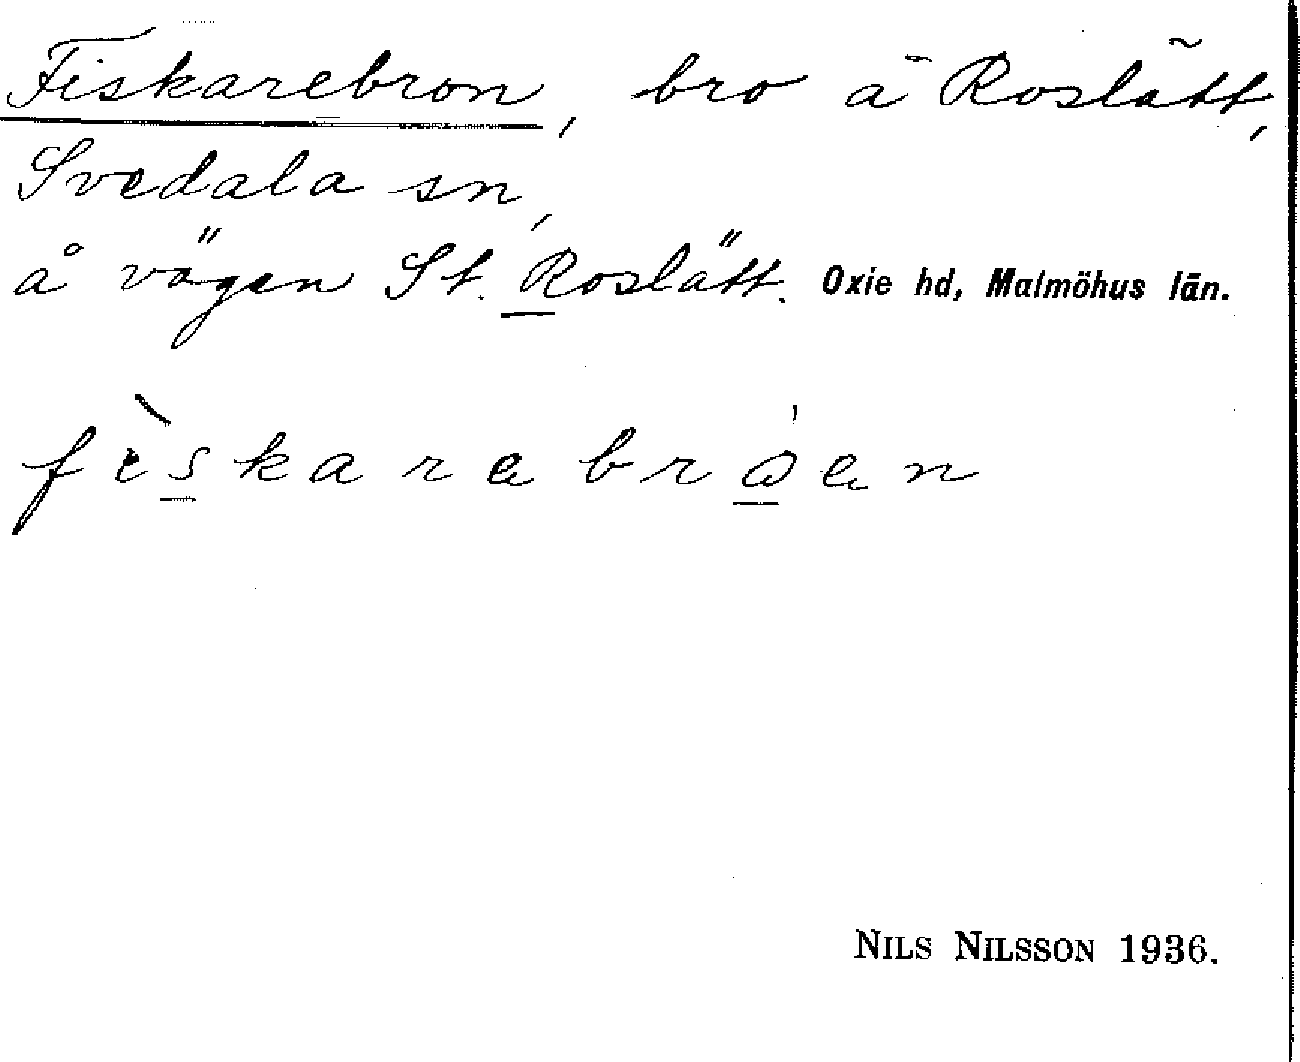 Fiskarebron, bro å Roslätt,
Svedala sn,
å vägen St. Roslätt. Oxie hd, Malmöhus län.
fèskarebróen
NILS NILSSON 1936.